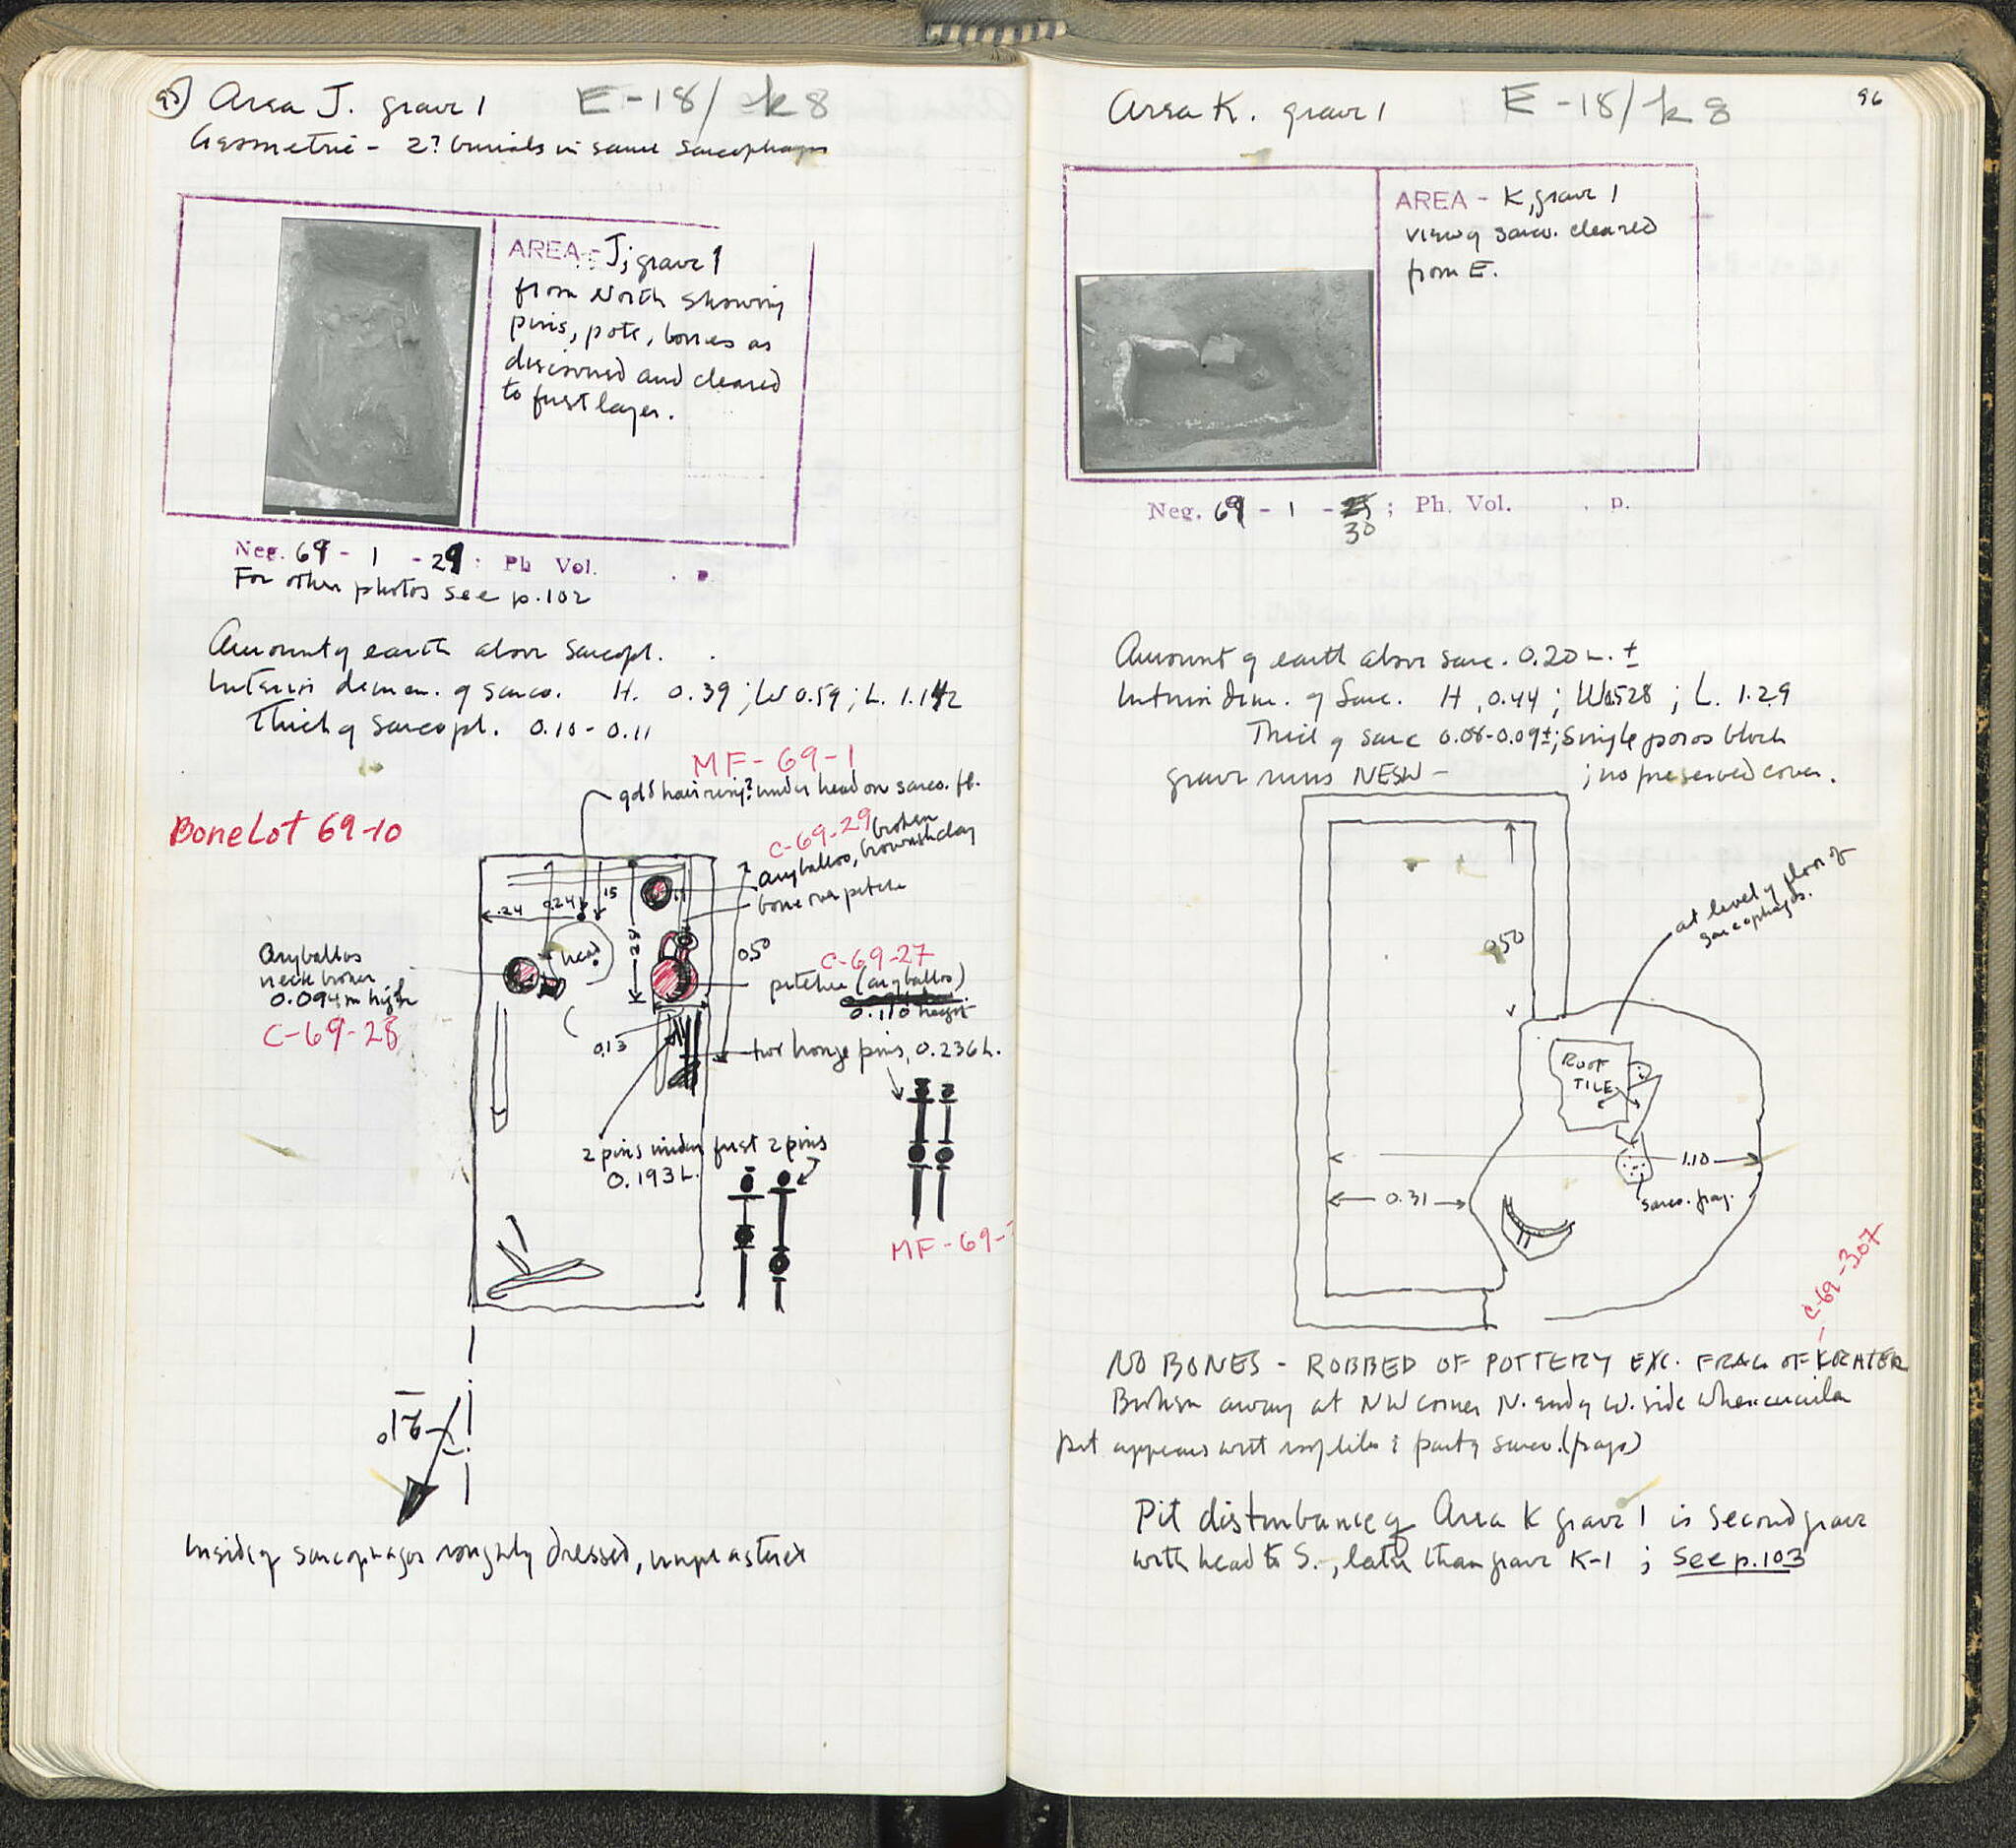 95) Area J. grave 1 E-18/k8
Geometric - 2? burials in same sarcophagus
AREA - J; grave 1
from North showing
pins, pots, bones as
discovered and cleared
to first layer.
Neg. 69 - 1 - 29 : Ph Vol. . p.
For other photos see p. 102
Amount of earth above sarcoph. .
Interior dimen. of sarco. H. 0.39; W 0.59; L. 1.142
Thick of sarcoph. 0.10 - 0.11
MF-69-1
gold hair ring? under head on sarco. fl.
Bone Lot 69-10
C-69-29 broken
aryballos, brownish clay
bone over pitcher
.24
0.24
.15
.11
head
.24
0.50
Aryballos
neck broken
0.094m high
C-69-28
C-69-27
pitcher (aryballos)
0.110 height
0.13
two bronze pins, 0.236 L.
2 pins under first 2 pins
0.193 L.
MF-69-
Inside of sarcophagos roughly dressed, unplastered
Area K. grave 1 E-18/k8 96
AREA - K, grave 1
view of sarco. cleared
from E.
Neg. 69 - 1 - 30 ; Ph. Vol. . p.
Amount of earth above sarc. 0.20 m. ±
Interior dim. of Sarc. H. 0.44; W 0.528; L. 1.29
Thick of sarc 0.08-0.09±; single poros block
grave runs NESW - ; no preserved cover.
at level of floor of
sarcophagos.
0.50
ROOF
TILE
1.10
0.31
sarco. frag.
C-69-307
NO BONES - ROBBED OF POTTERY EXC. FRAG OF KRATER
Broken away at NW corner N. end of W. side where circular
pit appears with rooftiles & part of sarco. (frags)
Pit disturbance of Area K grave 1 is second grave
with head to S., later than grave K-1 ; See p. 103